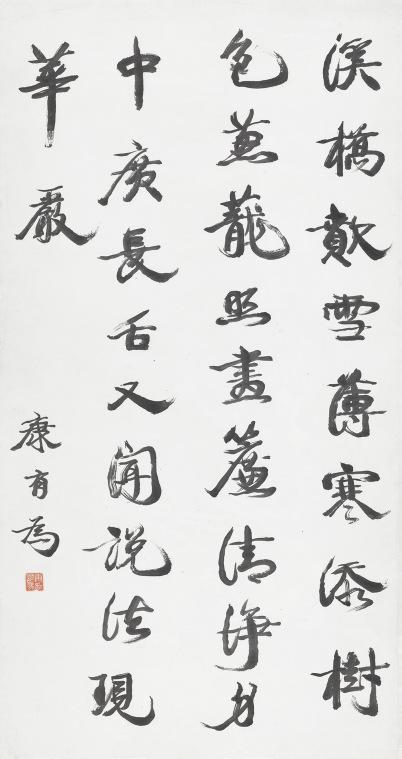 溪橋歕雪薄寒添樹
色蔥蘢照畫簾清淨身
中廣長舌又聞說法現
華嚴
康有為